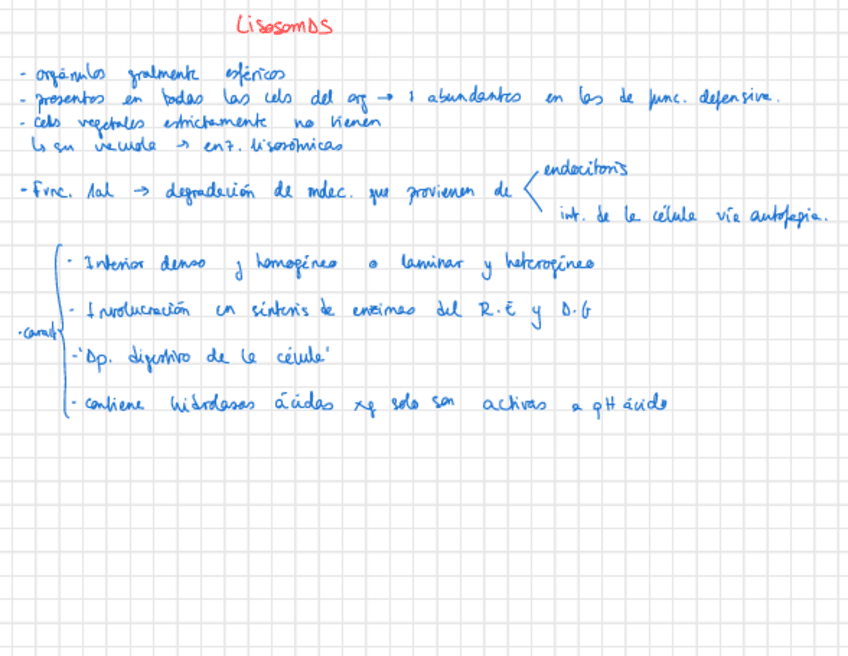 Lisosomas
- orgánulos gralmente esféricos
- presentes en todas las cels del org → ↑ abundantes en las de func. defensiva.
- cels vegetales estrictamente no tienen
↳ su vacuola → enz. lisosómicas
- Func. 1al → degradación de molec. que provienen de
endocitosis
int. de la célula vía autofagia.
- caract
- Interior denso y homogéneo o laminar y heterogéneo
- Involucración en síntesis de enzimas del R.E y D.G
- 'Ap. digestivo de la célula'
- contiene hidrolasas ácidas xq solo son activas a pH ácido